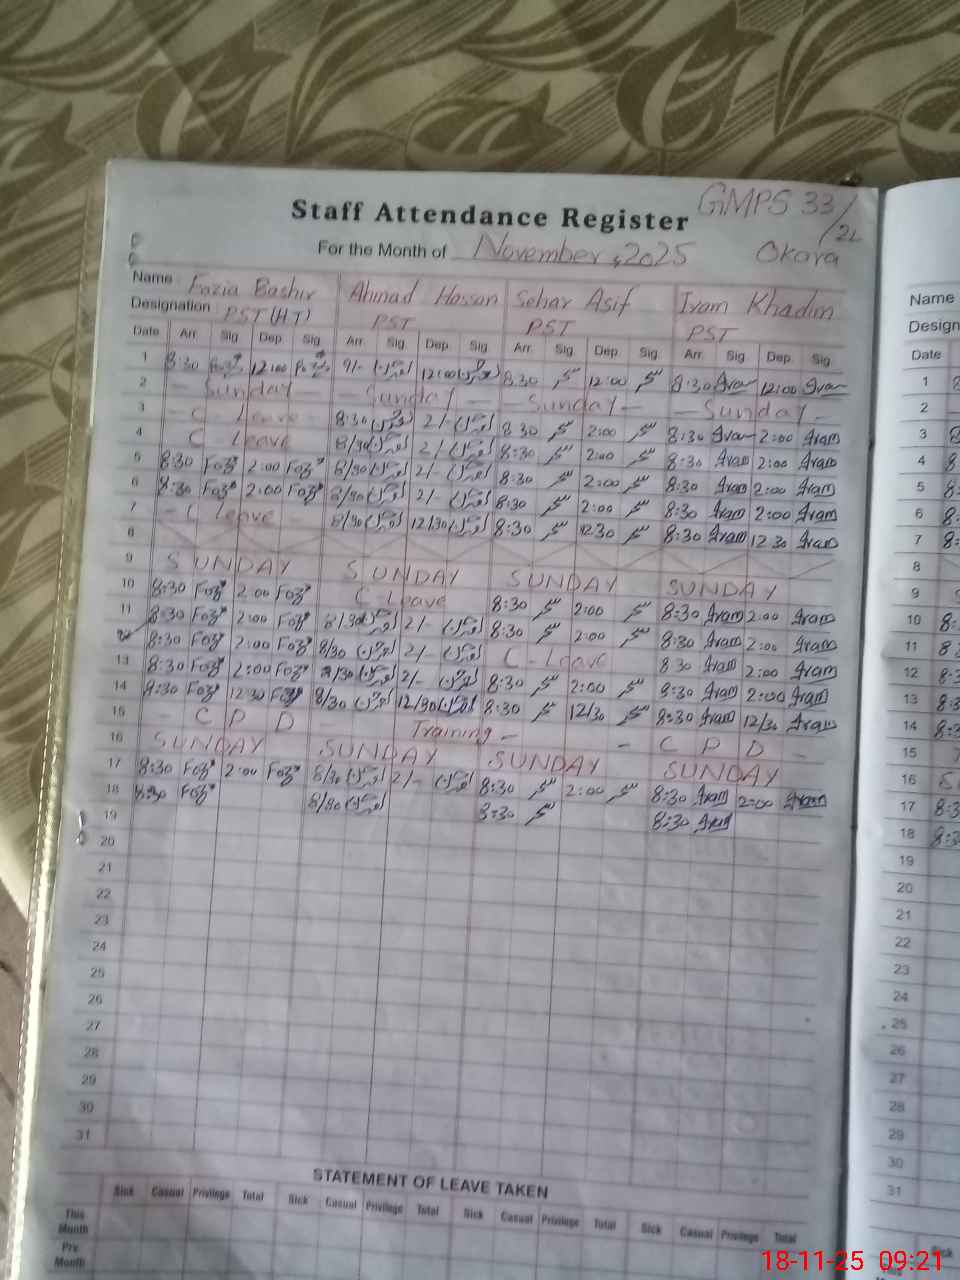 GMPS 33/2L
Staff Attendance Register
For the Month of November, 2025 Okara
Name Fozia Bashir Ahmad Hassan Sehar Asif Iram Khadim
Designation PST (H.T) PST PST PST
Date Arr. Sig. Dep. Sig. Arr. Sig. Dep. Sig. Arr. Sig. Dep. Sig. Arr. Sig. Dep. Sig.
1 8:30 12:00 9/- 12:00 8:30 12:00 8:30 Iram 12:00 Iram
2 - Sunday - Sunday - Sunday - - Sunday -
3 - C Leave - 8:30 2/- 8:30 2:00 8:30 Iram 2:00 Iram
4 C Leave 8/30 2/- 8:30 2:00 8:30 Iram 2:00 Iram
5 8:30 Foz 2:00 Foz 8/30 2/- 8:30 2:00 8:30 Iram 2:00 Iram
6 8:30 Foz 2:00 Foz 8/30 2/- 8:30 2:00 8:30 Iram 2:00 Iram
7 - C Leave 8/30 12/30 8:30 12:30 8:30 Iram 12:30 Iram
8
9 SUNDAY SUNDAY SUNDAY SUNDAY
10 8:30 Foz 2:00 Foz C Leave 8:30 2:00 8:30 Iram 2:00 Iram
11 8:30 Foz 2:00 Foz 8/30 2/- 8:30 2:00 8:30 Iram 2:00 Iram
8:30 Foz 2:00 Foz 8/30 2/- C-Leave 8:30 Iram 2:00 Iram
13 8:30 Foz 2:00 Foz 8/30 2/- 8:30 2:00 8:30 Iram 2:00 Iram
14 8:30 Foz 12:30 Foz 8/30 12/30 8:30 12/30 8:30 Iram 12/30 Iram
15 - C P D Training - - C P D -
16 SUNDAY SUNDAY SUNDAY SUNDAY
17 8:30 Foz 2:00 Foz 8/30 2/- 8:30 2:00 8:30 Iram 2:00 Iram
18 8:30 Foz 8/30 8:30 8:30 Iram
19
20
21
22
23
24
25
26
27
28
29
30
31
STATEMENT OF LEAVE TAKEN
Sick Casual Privilege Total Sick Casual Privilege Total Sick Casual Privilege Total Sick Casual Privilege Total
This Month
Pre. Month
Name
Date
1
2
3
4
5
6
7
8
9
10
11
12
13
14
15
16
17
18
19
20
21
22
23
24
25
26
27
28
29
30
31
Sick
18-11-25 09:21